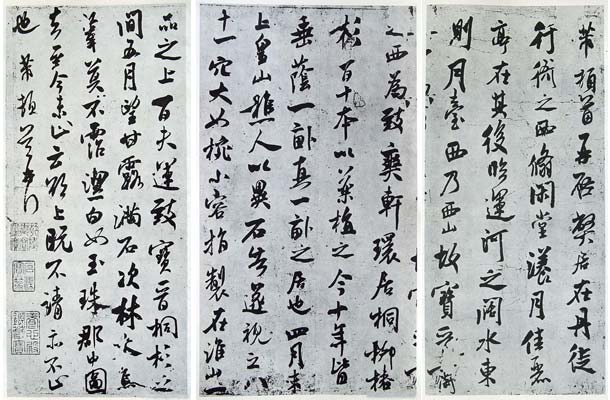 芾頓首再啓弊居在丹徒
行衙之西脩閑堂漾月佳麗
亭在其後臨運河之闊水東
則月臺西乃西山故寶晉齋
之西為致爽軒環居桐柳椿
杉百十本以藥植之今十年皆
垂蔭一畝真一畝之居也四月末
上皇山樵人以異石告遂視之八
十一穴大如椀小容指製在淮山一
品之上百夫運致寶晉桐杉之
間五月望甘露滿石次林次蕉
莫不霑白如玉珠郡中圖
去至今未止云欲上既不請亦不止
也芾頓首